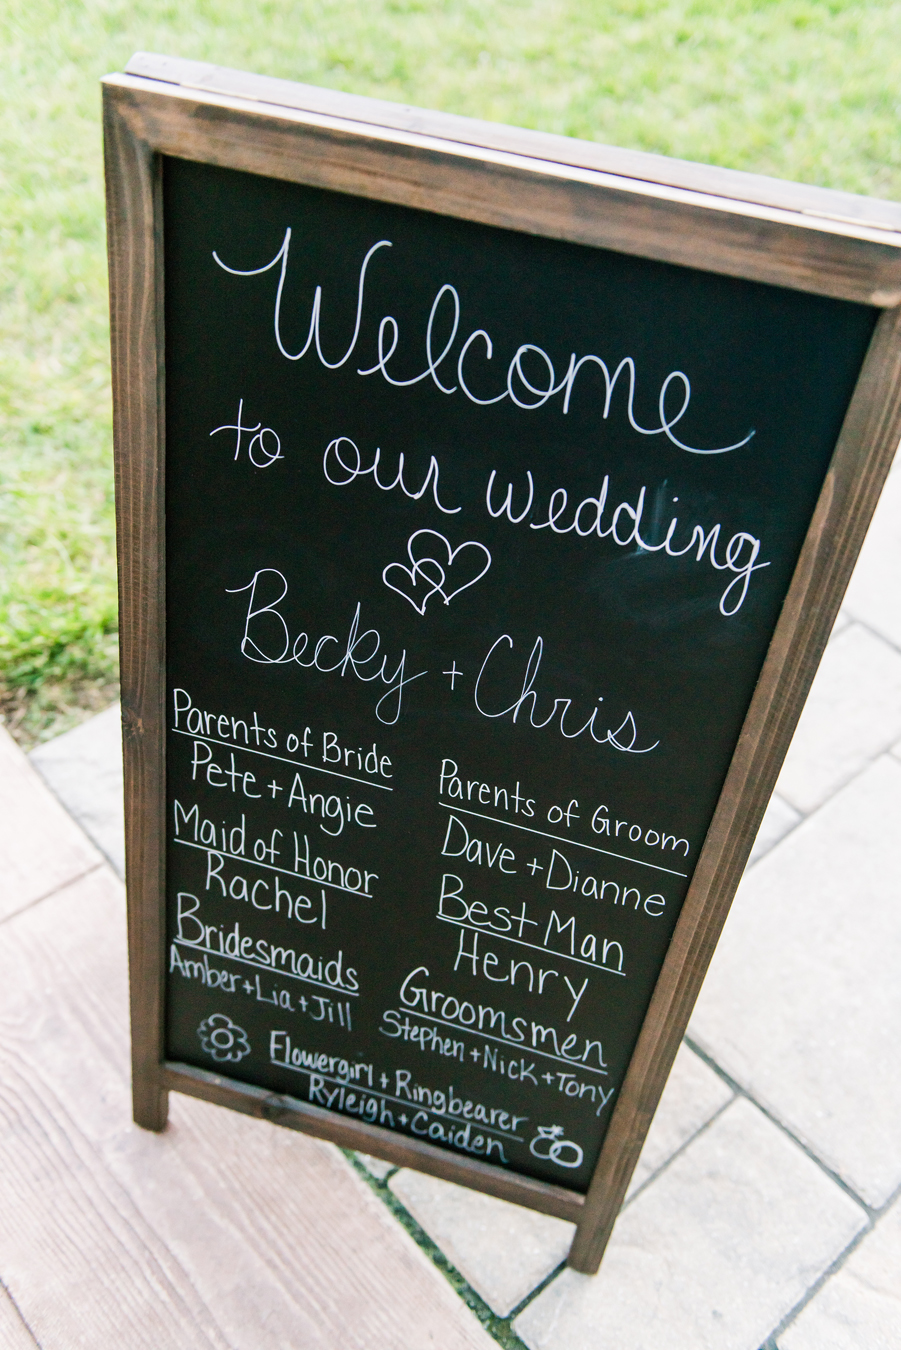 Welcome
to our wedding
Becky + Chris
Parents of Bride
Pete + Angie
Maid of Honor
Rachel
Bridesmaids
Amber + Lia + Jill
Parents of Groom
Dave + Dianne
Best Man
Henry
Groomsmen
Stephen + Nick + Tony
Flowergirl + Ringbearer
Ryleigh + Caiden